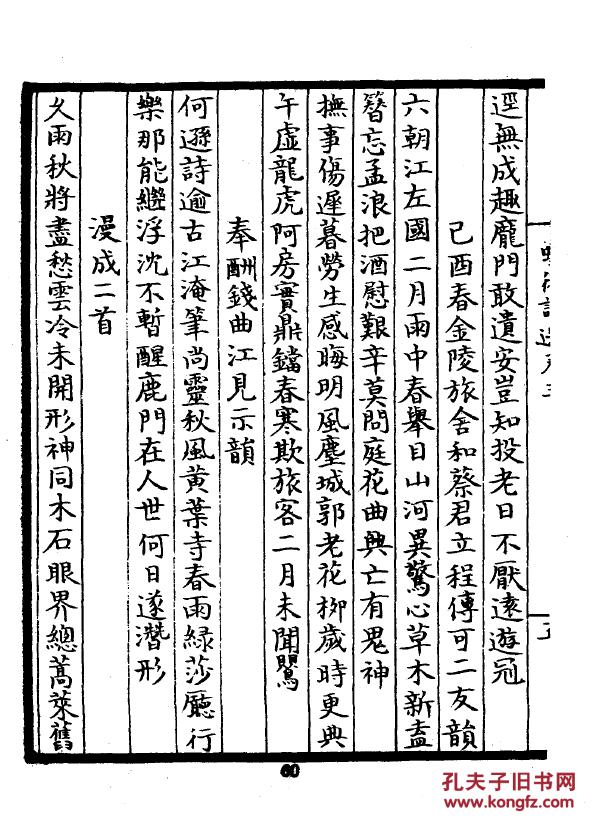 逕無成趣龐門敢遺安豈知投老日不厭遠遊冠
己酉春金陵旅舍和蔡君立程傳可二友韻
六朝江左國二月雨中春舉目山河異驚心草木新盍
簪忘孟浪把酒慰艱辛莫問庭花曲興亡有鬼神
撫事傷遲暮勞生感晦明風塵城郭老花柳歲時更典
午虛龍虎阿房實鼎鐺春寒欺旅客二月未聞鶯
奉酬錢曲江見示韻
何遜詩逾古江淹筆尚靈秋風黃葉寺春雨綠莎廳行
樂那能繼浮沈不暫醒鹿門在人世何日遂潛形
漫成二首
久雨秋將盡愁雲冷未開形神同木石眼界總蒿萊舊
60
孔夫子旧书网
www.kongfz.com